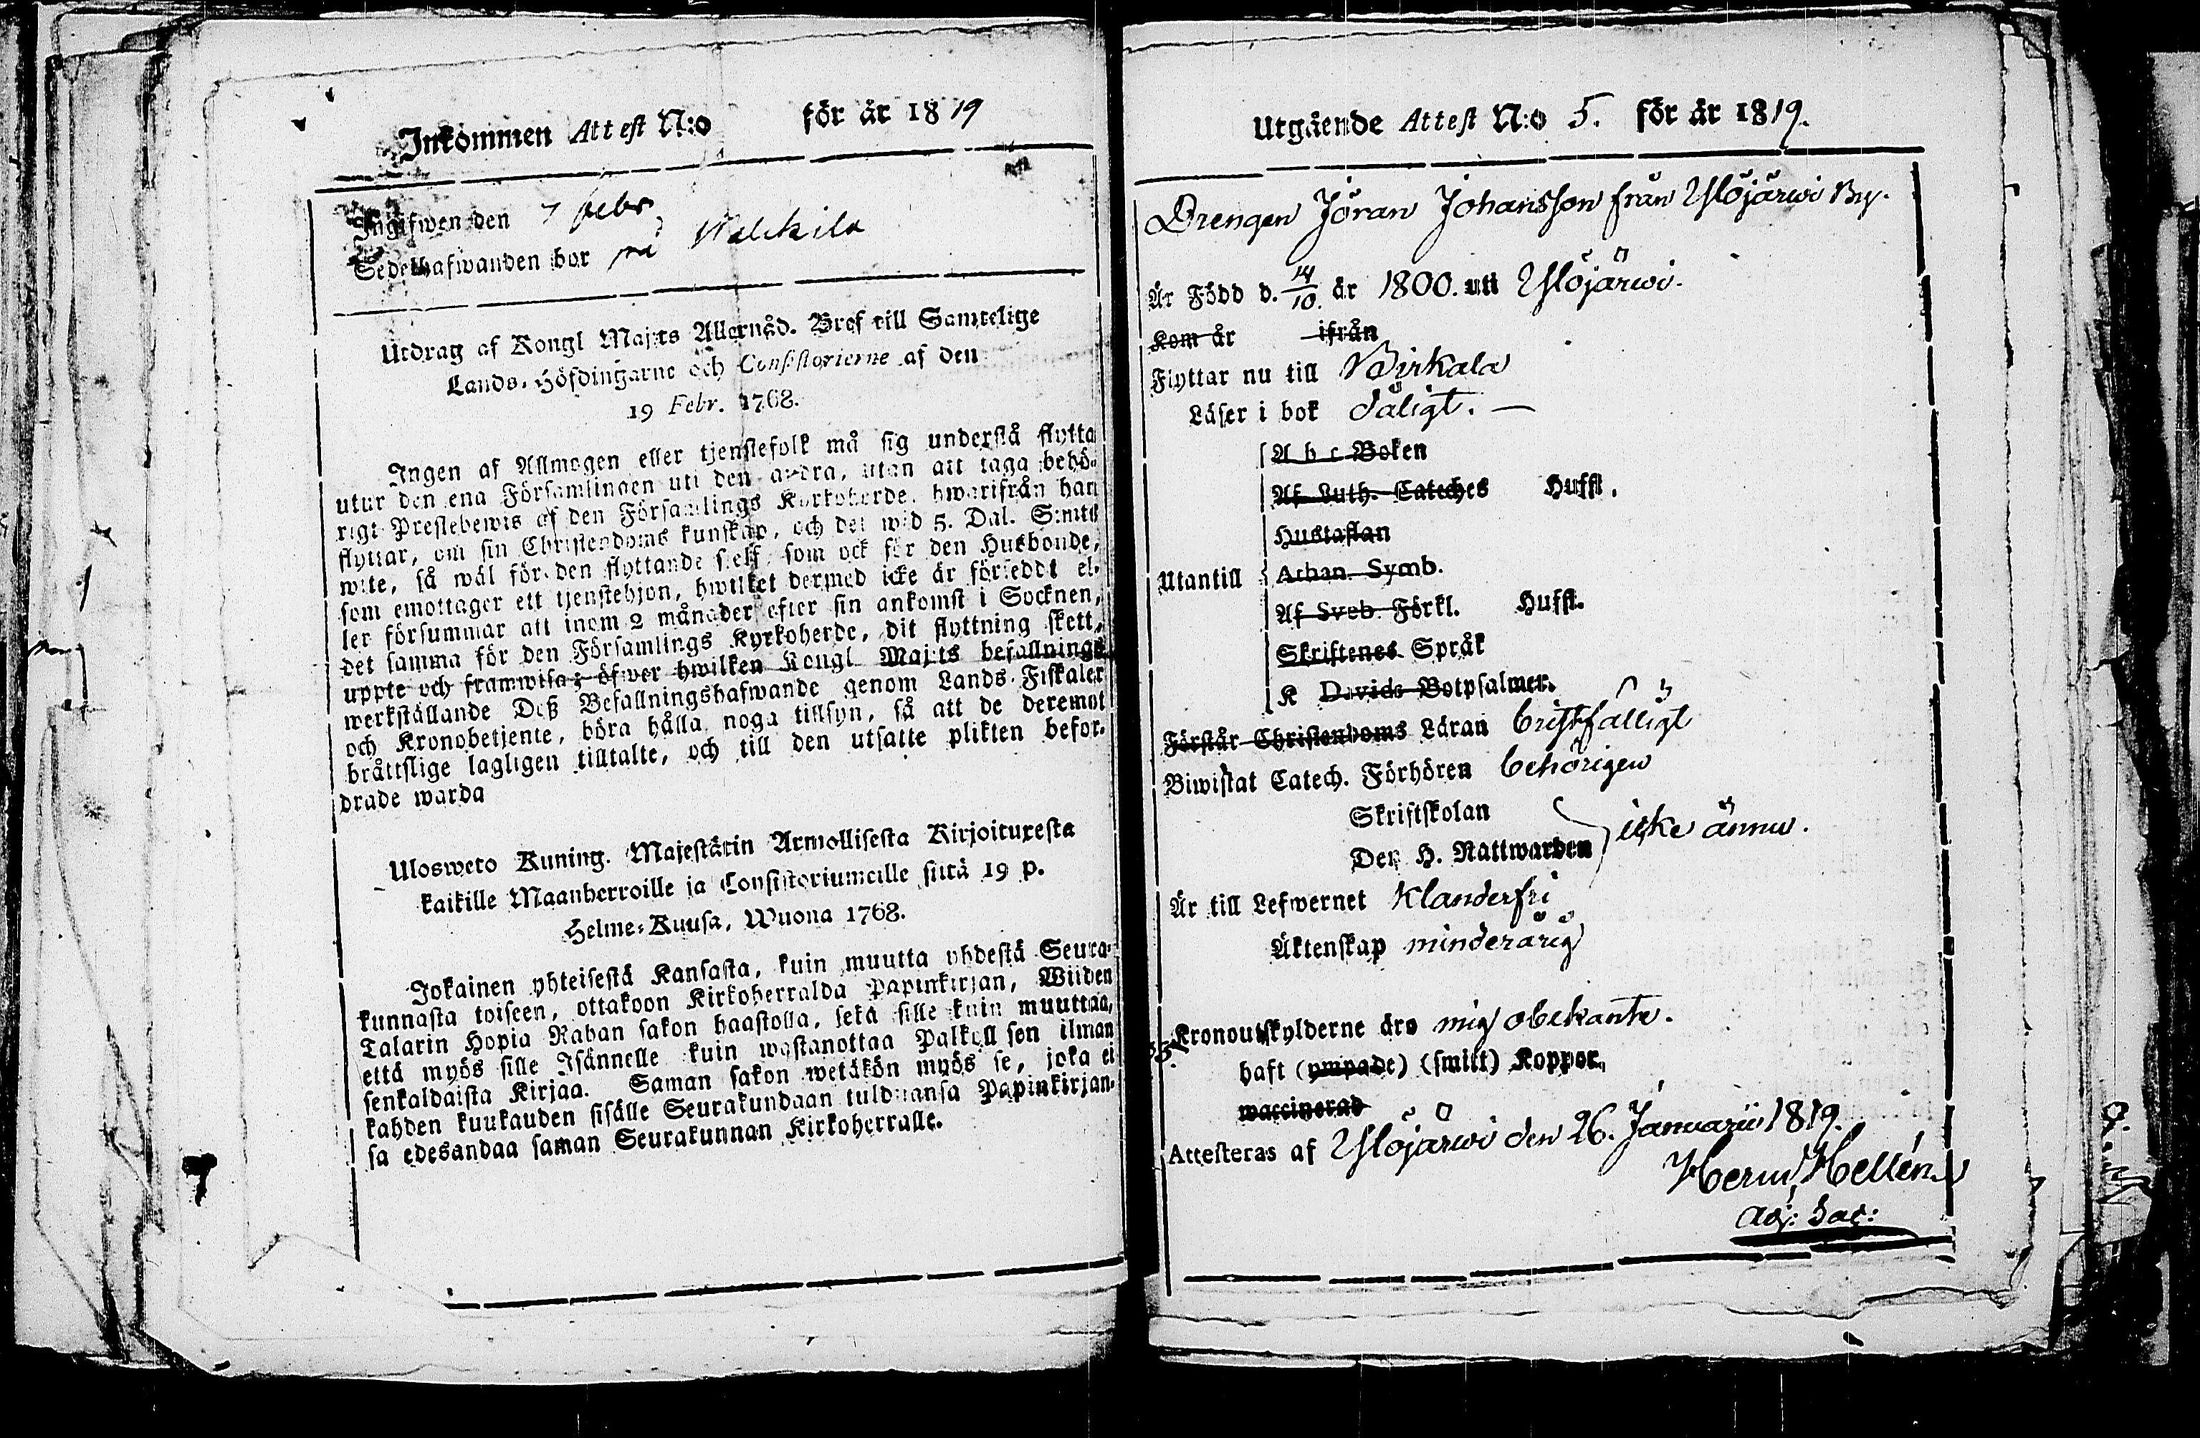 Inkommen Attest N:o för år 1819
Ingifwen den 7 febr
Sedelhafwanden bor på
Utdrag af Kongl Maj:ts Allernåd. Bref till Samtelige
Lands-Höfdingarne och Consistorierne af den
19 Febr. 1768.
Ingen af Allmogen eller tjenstefolk må sig understå flytta
utur den ena Församlingen uti den andra, utan att taga behö-
rigt Prestebewis af den Församlings Kyrkoherde, hwarifrån han
flyttar, om sin Christendoms kunskap, och det wid 5. Dal. S:mts
wite, så wäl för den flyttande sjelf, som ock för den Husbonde,
som emottager ett tjenstehjon, hwilket dermed icke är försedde el-
ler försummar att inom 2 månader efter sin ankomst i Socknen,
det samma för den Församlings Kyrkoherde, dit flyttning skett,
uppte och framwisa; öfwer hwilken Kongl Maj:ts befallnings
werkställande Deß Befallningshafwande genom Lands-Fiskaler
och Kronobetjente, böra hålla noga tillsyn, så att de deremot
bråttslige lagligen tilltalte, och till den utsatte plikten befor-
drade warda
Ulosweto Kuning. Majestätin Armollisesta Kirjoituxesta
kaikille Maanherroille ja Consistoriumeille siitä 19 p.
Helme-Kuusa, Wuona 1768.
Jokainen yhteisestä Kansasta, kuin muutta yhdestä Seura-
kunnasta toiseen, ottakoon Kirkoherralda Papinkirjan, Wiiden
Talarin Hopia Rahan sakon haastolla, sekä sille kuin muuttaa,
että myös sille Isännelle kuin wastanottaa Palkollisen ilman
senkaldaista Kirjaa. Saman sakon wetäkön myös se, joka ei
kahden kuukauden sisälle Seurakundaan tulduansa Papinkirjan-
sa edesandaa saman Seurakunnan Kirkoherralle.
Utgående Attest N:o 5. för år 1819.
Drengen Jöran Johansson från Ylöjärwi By.
Är Född d. 14/10. år 1800. uti Ylöjärwi.
Kom år ifrån
Flyttar nu till Birkala
Läser i bok dåligt. —
A b c Boken
Af Luth. Cateches Hufst.
Hustaflan
Utantill Athan. Symb.
Af Sveb. Förkl. Hufst.
Skriftenes Språk
K Davids Botpsalmer.
Förstår Christendoms Läran bristfälligt
Biwistat Catech. Förhören behörigen
Skriftskolan
Den H. Nattwarden icke ännu.
Är till Lefwernet klanderfri
Äktenskap minderårig
Kronoutskylderne äro mig obekante.
haft (ympade) (smitt) Koppor,
waccinerad
Attesteras af Ylöjärwi den 26. Januarii 1819.
Herm Hellén
Adj: Sac: